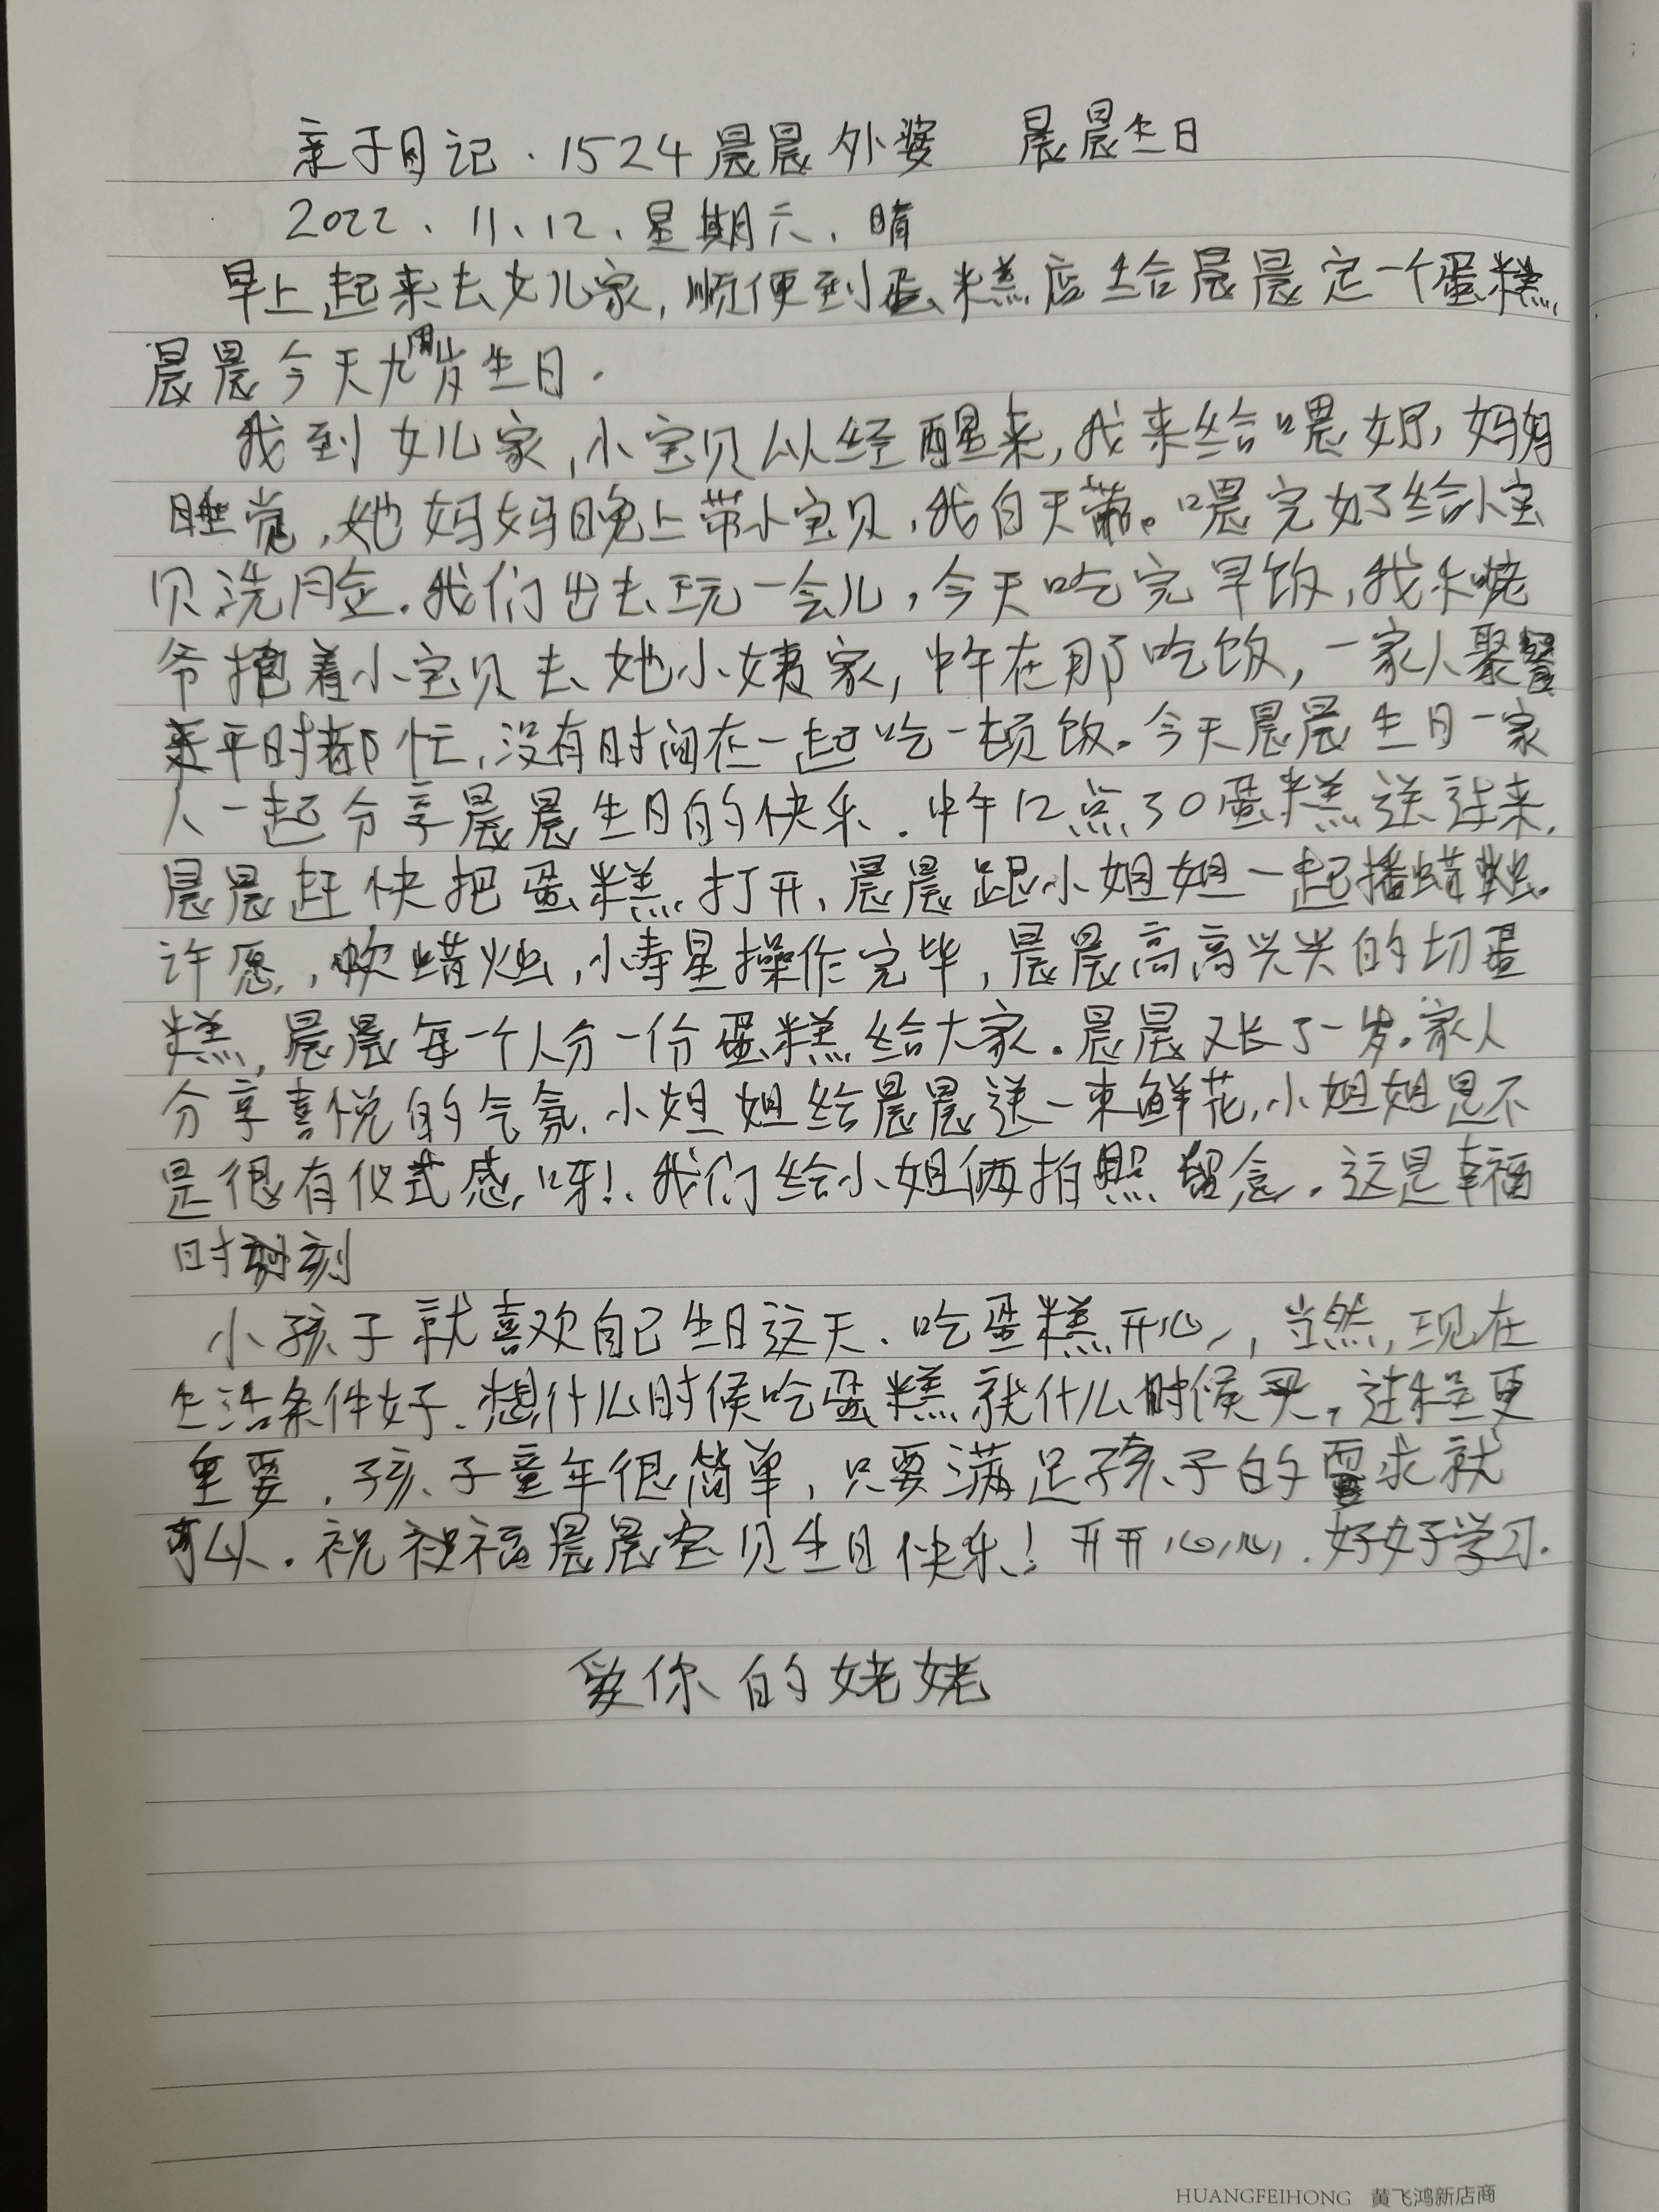 亲子日记·1524晨晨外婆 晨晨生日
2022、11、12、星期六、晴
早上起来去女儿家,顺便到蛋糕店给晨晨定一个蛋糕,
晨晨今天九周岁生日.
我到女儿家,小宝贝以经醒来,我来给喂奶,妈妈
睡觉,她妈妈晚上带小宝贝,我白天带。喂完奶了给小宝
贝洗脸.我们出去玩一会儿,今天吃完早饭,我和姥
爷抱着小宝贝去她小姨家,中午在那吃饭,一家人聚餐
平时都忙,没有时间在一起吃一顿饭.今天晨晨生日一家
人一起分享晨晨生日的快乐.中午12点30蛋糕送过来.
晨晨赶快把蛋糕打开、晨晨跟小姐姐一起播蜡烛.
许愿,吹蜡烛,小寿星操作完毕,晨晨高高兴兴的切蛋
糕,晨晨每一个人分一份蛋糕给大家.晨晨又长了一岁.家人
分享喜悦的气氛.小姐姐给晨晨送一束鲜花,小姐姐是不
是很有仪式感呀!.我们给小姐俩拍照留念.这是幸福
时刻
小孩子就喜欢自己生日这天.吃蛋糕开心,当然,现在
生活条件好.想什么时候吃蛋糕就什么时候买,过程更
重要.孩子童年很简单,只要满足孩子的需求就
可以.祝福晨晨宝贝生日快乐!开开心心.好好学习.
爱你的姥姥
HUANGFEIHONG 黄飞鸿新店商